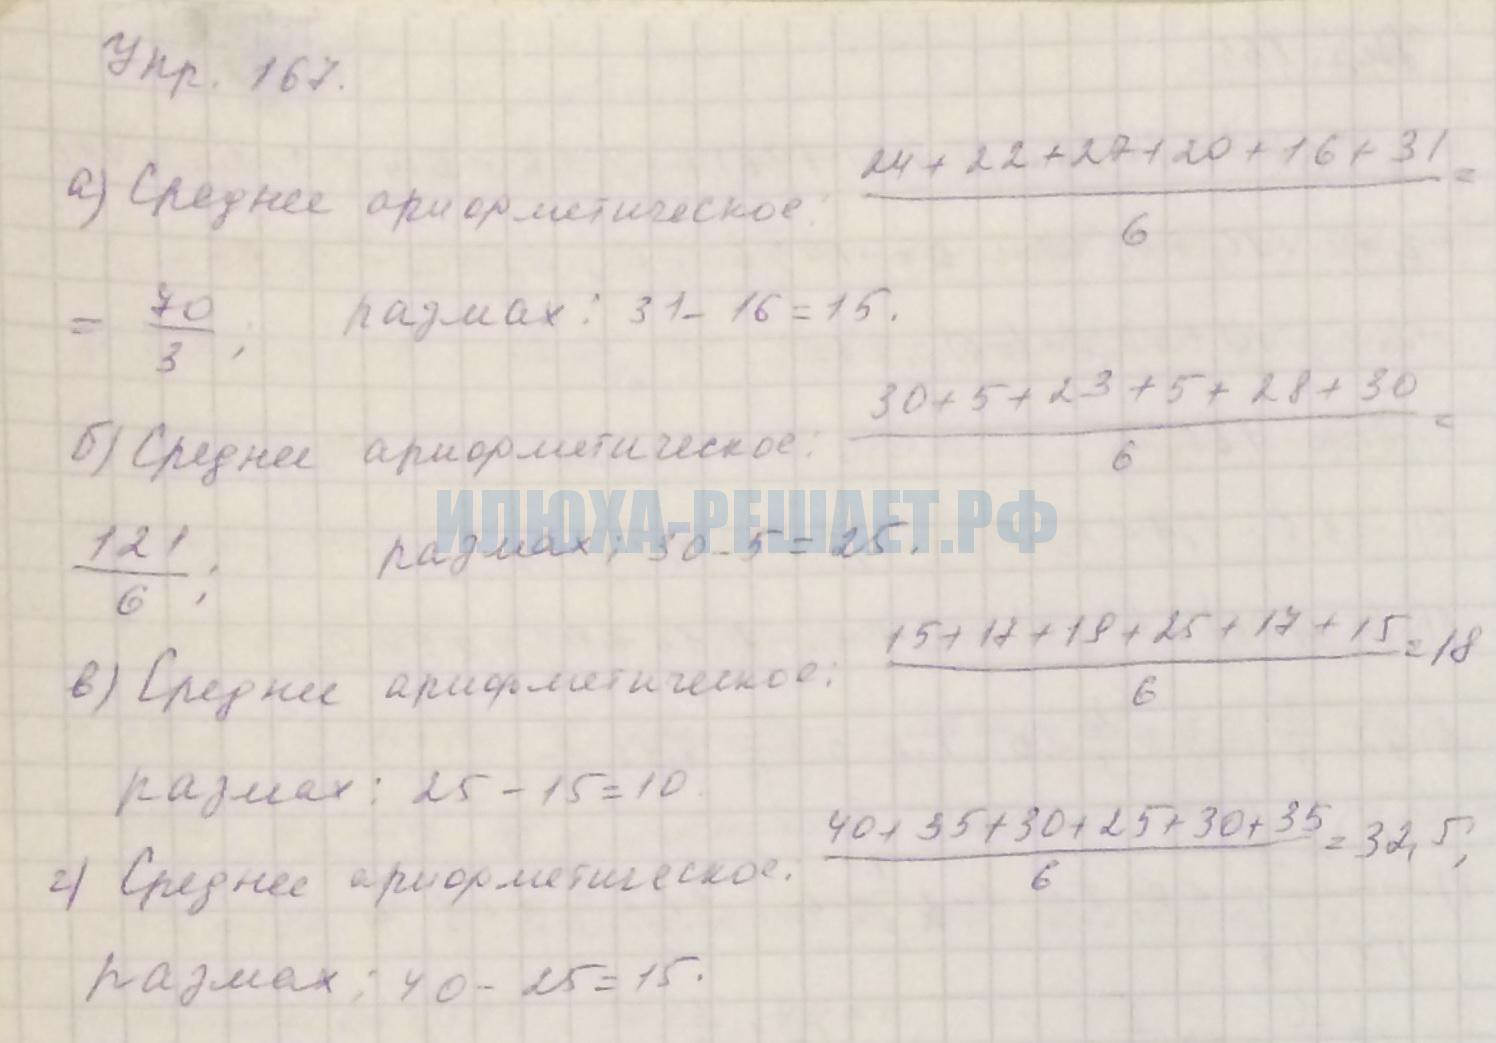 Упр. 167.
а) Среднее арифметическое: (24+22+27+20+16+31)/6 =
= 70/3; размах: 31-16=15.
б) Среднее арифметическое: (30+5+23+5+28+30)/6 =
121/6; размах: 30-5=25.
ИЛЮХА-РЕШАЕТ.РФ
в) Среднее арифметическое: (15+17+19+25+17+15)/6 =18
размах: 25-15=10.
г) Среднее арифметическое. (40+35+30+25+30+35)/6 =32,5;
размах: 40-25=15.